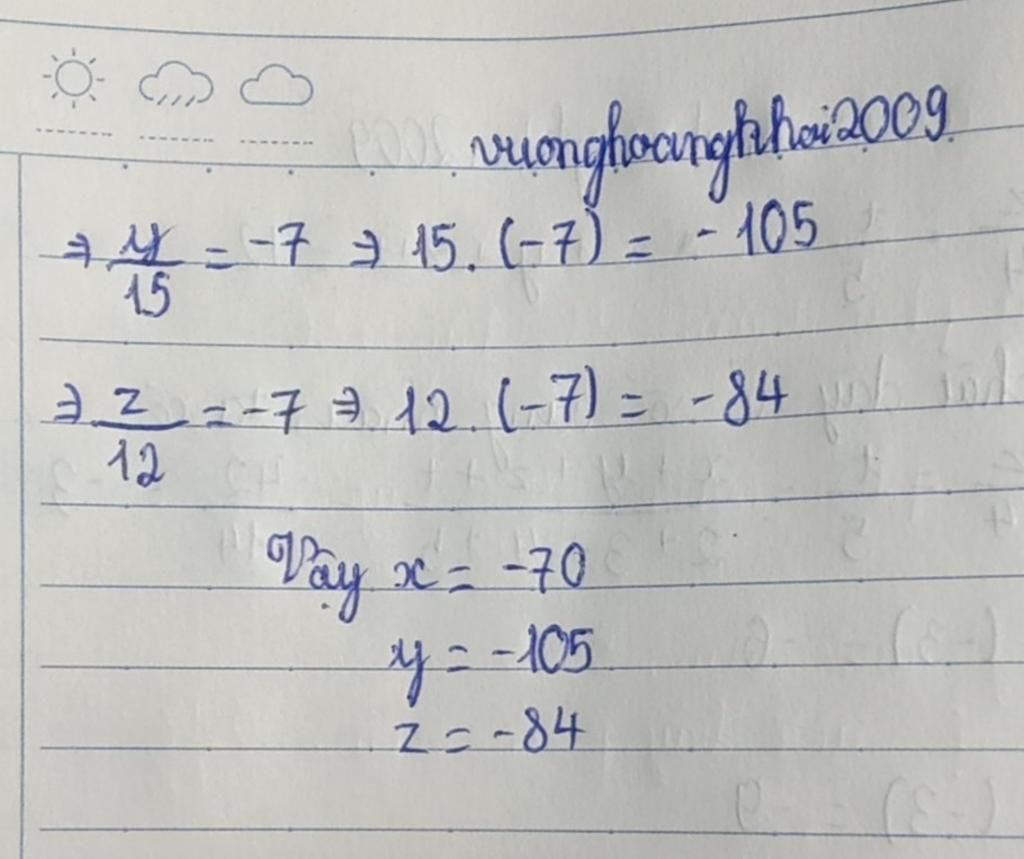 vuonghoangkhai2009
⇒ y/15 = -7 ⇒ 15. (-7) = - 105
⇒ z/12 = -7 ⇒ 12. (-7) = -84
Vậy x = -70
y = -105
z = -84